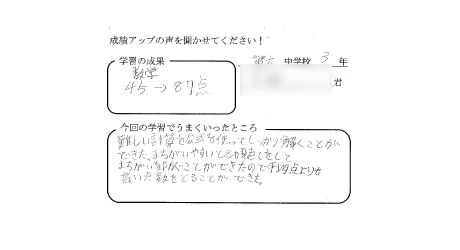 成績アップの声を聞かせてください!
中学校 3 年
学習の成果
数学
45→87点
君
今回の学習でうまくいったところ
難しい計算を公式を使ってしっかり解くことが
できた。まちがいやすい所を見直しをして
まちがいを防ぐことができたので平均点よりも
高い点数をとることができた。